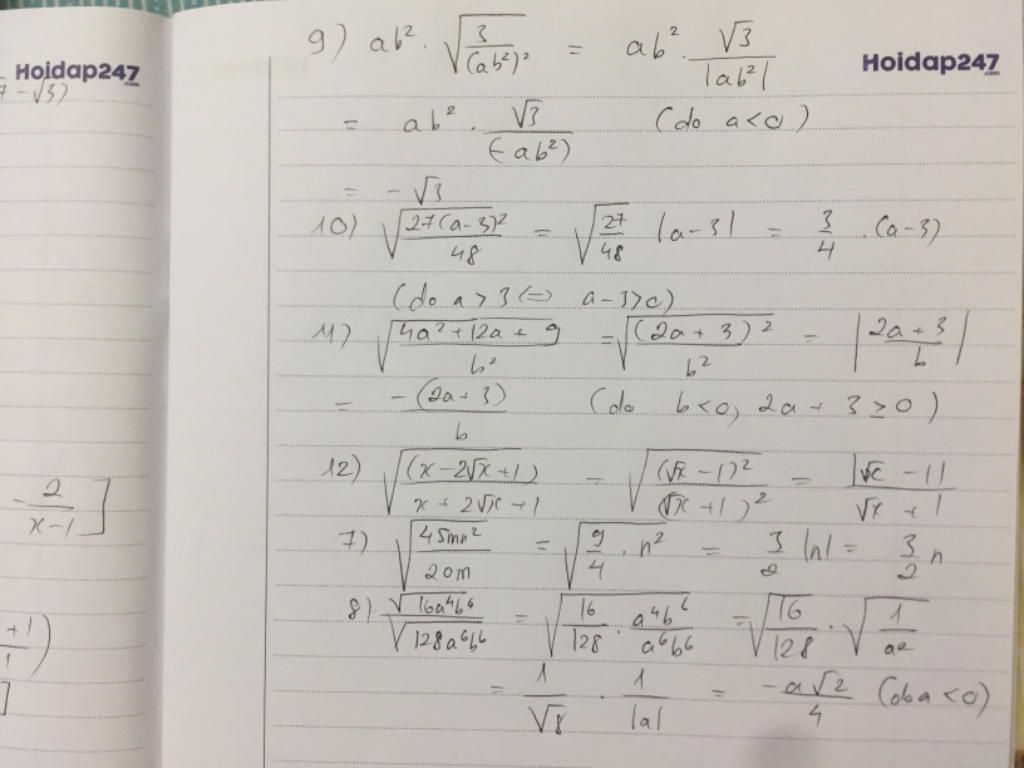 Hoidap247.com
7 - √3)
- 2/(x-1) ]
+1)/1
]
9) ab² · √(3/(ab²)²) = ab² · √3/|ab²|
Hoidap247.com
= ab² · √3/(-ab²) (do a<0)
= -√3
10) √(27(a-3)²/48) = √(27/48) |a-3| = 3/4 · (a-3)
(do a > 3 <=> a-3>0)
11) √((4a²+12a+9)/b²) = √((2a+3)²/b²) = |(2a+3)/b|
= -(2a+3)/b (do b<0, 2a+3 ≥ 0)
12) √((x-2√x+1)/(x+2√x+1)) = √((√x-1)²/(√x+1)²) = |√x-1|/(√x+1)
7) √(45mn²/20m) = √(9/4 · n²) = 3/2 |n| = 3/2 n
8) √(16a⁴b⁶)/√(128a⁶b⁶) = √(16/128 · a⁴b⁶/a⁶b⁶) = √(16/128) · √(1/a²)
= 1/√8 · 1/|a| = -a√2/4 (do a<0)